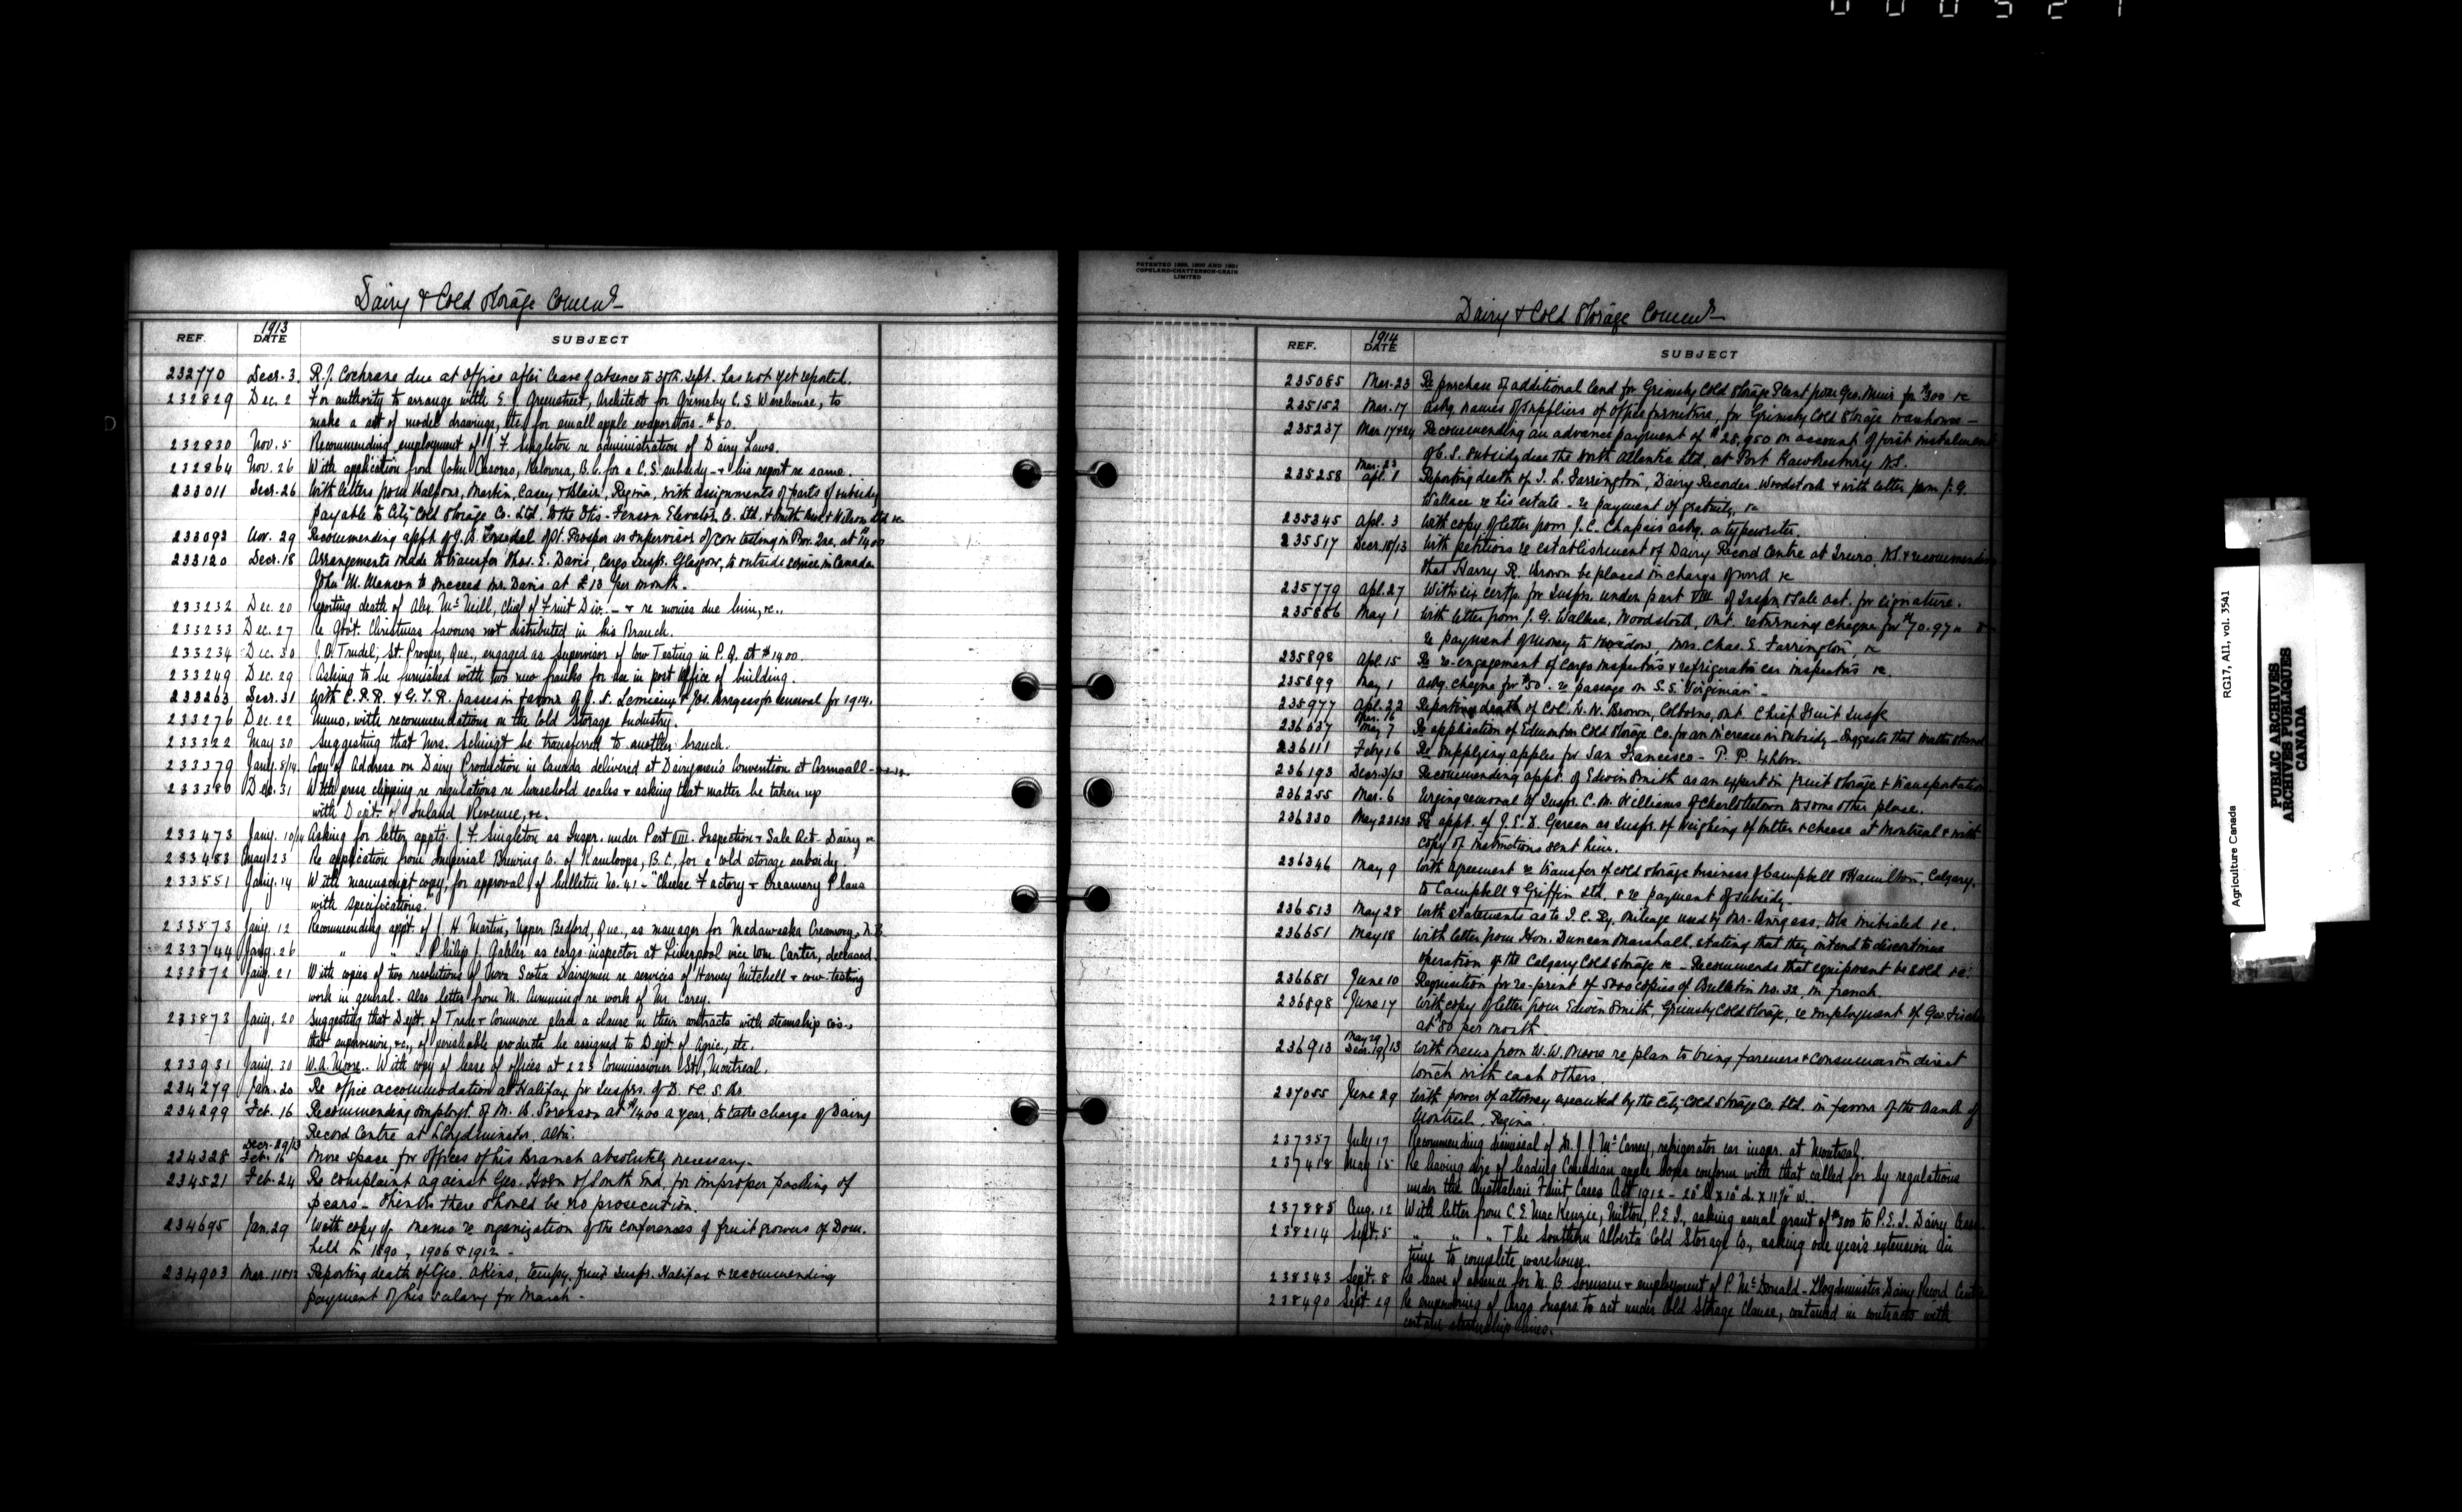 000521
Dairy & Cold Storage Commr
1913
REF. DATE SUBJECT
232770 Decr. 3. R.J. Cochrane due at office after leave of absence to 30th. Sept. has not yet reported.
232829 Dec. 2 For authority to arrange with Greenstreet, Architect for Grimsby C.S. Warehouse, to
make a set of model drawings, etc. for small apple evaporators - $50.
232830 Nov. 5 Recommending employment of J.F. Singleton re administration of Dairy Laws.
232864 Nov. 26 With application from John Casorso, Kelowna, B.C. for a C.S. subsidy - & his report re same.
233011 Decr. 26 With letters from Balfour, Martin, Casey & Blair, Regina, with assignments of parts of subsidy
payable to City Cold Storage Co. Ltd. to the Otis-Fenson Elevator Co. Ltd. & Smith Bros. & Wilson Ltd &c
233093 Nov. 29 Recommending appt. of J.A. Trudel of St. Prosper as supervisor of cow testing in Prov. Que. at $1400
233120 Decr. 18 Arrangements made to transfer Thos. E. Davis, Cargo Inspr. Glasgow, to outside service in Canada
John M. Manson to succeed Mr. Davis at £13 per month.
233232 Dec. 20 Reporting death of Alex. McNeill, Chief of Fruit Div. - & re monies due him, &c..
233233 Dec. 27 Re Gov't. Christmas favours not distributed in his Branch.
233234 Dec. 30 J.A. Trudel, St. Prosper, Que., engaged as Supervisor of Cow Testing in P.Q. at $1400.
233249 Dec. 29 Asking to be furnished with two new franks for use in post office of building.
233263 Decr. 31 With C.P.R. & G.T.R. passes in favour of J.N. Lemieux & Jos. Burgess for renewal for 1914.
233276 Dec. 22 Memo. with recommendations on the Cold Storage Industry.
233322 May 30 Suggesting that Mrs. be transferred to another branch.
233379 Jany. 8/14 Copy of Address on Dairy Production in Canada delivered at Dairymen's Convention at Cornwall
233380 Dec. 31 With press clipping re regulations re household scales & asking that matter be taken up
with Dept. of Inland Revenue, &c.
233473 Jany. 10/14 Asking for letter apptg. J.F. Singleton as Inspr. under Part VIII. Inspection & Sale Act - Dairy &c
233483 May 23 Re application from Imperial Brewing Co. of Kamloops, B.C., for a cold storage subsidy.
233551 Jany. 14 With manuscript copy, for approval, of bulletin No. 41 - "Cheese Factory & Creamery Plans
with specifications.
233573 Jany. 12 Recommending appt. of J.H. Martin, Upper Bedford, Que., as manager for Madawaska Creamery, N.B.
233744 Jany. 26 " " " Philip J. Gabler as cargo inspector at Liverpool vice Wm. Carter, deceased.
233872 Jany. 21 With copies of two resolutions of Nova Scotia Dairymen re services of Harvey Mitchell & cow-testing
work in general - Also letter from M. Cumming re work of Mr. Carey.
233873 Jany. 20 Suggesting that Dept. of Trade & Commerce place a clause in their contracts with steamship co's..
that supervision, &c., of perishable products be assigned to Dept. of Agric., etc.
233931 Jany. 30 W.A. Moore.. With copy of lease of offices at 223 Commissioner St., Montreal.
234279 Jan. 20 Re office accommodation at Halifax for Insprs. of D. & C.S. Br.
234299 Feb. 16 Recommending employt. of M.B. Sorenson at $1400 a year, to take charge of Dairy
Record Centre at Lloydminster, Alta.
Decr. 29/13
234328 Feb. 16 More space for offices of his Branch absolutely necessary.
234521 Feb. 24 Re complaint against Geo. of South End, for improper packing of
pears - thinks there should be no prosecution.
234695 Jan. 29 With copy of memo re organization of the conferences of fruit growers of Dom.
held in 1890, 1906 & 1912 -
234903 Mar. 11&12 Reporting death of Geo. Akins, tempy. fruit Inspr. Halifax & recommending
payment of his salary for March -
PATENTED 1898, 1900 AND 1901
COPELAND-CHATTERSON-CRAIN
LIMITED
Dairy & Cold Storage Commr
1914
REF. DATE SUBJECT
235085 Mar. 23 Re purchase of additional land for Grimsby Cold Storage Plant from Geo. Muir for $300 &c
235152 Mar. 17 Askg. names of suppliers of office furniture, for Grimsby Cold Storage warehouse -
235237 Mar 17&24 Recommending an advance payment of $28,950 on account of first instalment
of C.S. subsidy due the North Atlantic Ltd. at Port Hawkesbury N.S.
Mar. 23
235258 Apl. 1 Reporting death of J.L. Farrington, Dairy Recorder. Woodstock & with letter from J.G.
Wallace re his estate - re payment of gratuity, &c
235345 Apl. 3 With copy of letter from J.C. Chapais askg. a typewriter.
235517 Decr. 18/13 With petitions re establishment of Dairy Record Centre at Truro, N.S. & recommending
that Harry R. Brown be placed in charge of work &c
235779 Apl. 27 With six certfs. for Insprs. under part VIII of Inspn & Sale Act. for signature.
235886 May 1 With letter from J.G. Wallace, Woodstock, Ont. returning cheque for $70.97
re payment of money to widow, Mrs. Chas. E. Farrington, &c
235898 Apl. 15 Re re-engagement of cargo inspectors & refrigerator car inspectors &c.
235899 May 1 Askg. cheque for $50. re passage on S.S. "Virginian" -
235977 Apl. 22 Reporting death of Col. H.N. Brown, Colborne, Ont. Chief Fruit Inspr
Mar. 16
236037 May 7 Re application of Edmonton Cold Storage Co. for an increase in subsidy - Suggests that matter stand
236111 Feby 16 Re supplying apples for San Francisco - P.P. Exhbn.
236193 Decr. 3/13 Recommending appt. of Edwin Smith as an expert in fruit storage & transportation
236255 Mar. 6 Urging removal of Inspr. C.M. Williams of Charlottetown to some other place.
236330 May 22&23 Re appt. of J.E.N. Gareau as Inspr. of weighing of butter & cheese at Montreal & with
copy of instructions sent him.
236346 May 9 With agreement re transfer of cold storage business of Campbell & Hamilton, Calgary,
to Campbell & Griffin Ltd. & re payment of subsidy.
236513 May 28 With statements as to I.C. Ry. mileage used by Mr. Burgess, to be initialed &c.
236651 May 18 With letter from Hon. Duncan Marshall, stating that they intend to discontinue
operation of the Calgary Cold Storage &c - Recommends that equipment be sold &c.
236681 June 10 Requisition for re-print of 5000 copies of Bulletin No. 32, in french.
236898 June 17 With copy of letter from Edwin Smith, Grimsby Cold Storage, re employment of Geo.
at $80 per month.
May 29
236913 Decr. 19/13 With memo from W.W. Moore re plan to bring farmers & consumers in direct
touch with each others.
237055 June 29 With power of attorney executed by the City Cold Storage Co. Ltd. in favour of the Bank of
Montreal, Regina.
237357 July 17 Recommending dismissal of J.J. McCarrey, refrigerator car inspr. at Montreal.
237418 May 15 Re having size of leading Canadian apple boxes conform with that called for by regulations
under the Australian Fruit Cases Act 1912 -
237885 Aug. 12 With letter from C.E. MacKenzie, Milton, P.E.I., asking usual grant of $300 to P.E.I. Dairy Assn.
238214 Sept. 5 " " " The Southern Alberta Cold Storage Co., asking one year's extension in
time to complete warehouse.
238343 Sept. 8 Re leave of absence for M.B. Sorensen & employment of P. McDonald - Lloydminster Dairy Record Centre
238490 Sept. 29 Re empowering of Cargo Insprs. to act under Cold Storage Clause, contained in contracts with
certain steamship lines.
Agriculture Canada RG17, AII, vol. 3541
PUBLIC ARCHIVES
ARCHIVES PUBLIQUES
CANADA